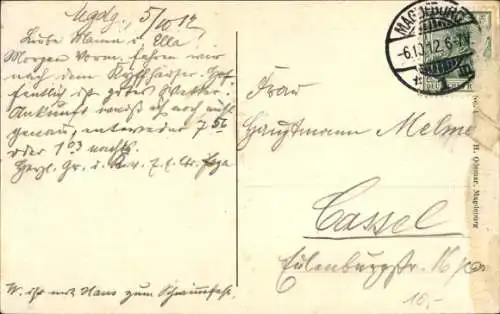 Mgdg. 5/10 12
Liebe Mama u. Ella
Morgen Vorm. fahren wir
nach dem Kyffhäuser. Hof
fentlich ist gutes Wetter.
Ankunft weiß ich noch nicht
genau, entweder 7 56
oder 1 03 nachts.
Herzl. Gr. u.
W. ist mit Hans zum Schwimmfest.
MAGDEBURG
-6.10.12.6-7
Frau
Hauptmann Melme
Cassel
Eulenburgstr.
10.-
Magdeburg